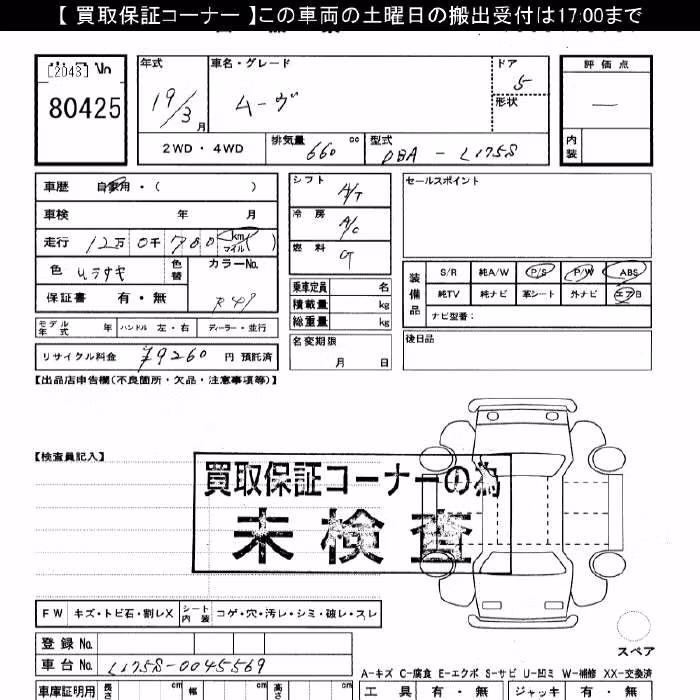 【 買取保証コーナー 】この車両の土曜日の搬出受付は17:00まで
[2043] No
80425
年式 19/3 月
車名・グレード ムーヴ
ドア 5
形状
評価点 —
内装
2WD・4WD
排気量 660 cc
型式 DBA - L175S
車歴 自家用・( )
車検 年 月
走行 12万 0千 780 (km マイル)
色 ムラサキ
色替
カラーNo.
保証書 有・無
R49
モデル年式 年 ハンドル 左・右 ディーラー・並行
リサイクル料金 ¥9260 円 預託済
シフト A/T
冷房 A/C
燃料 G
乗車定員 名
積載量 kg
総重量 kg
名変期限
月 日
セールスポイント
装備品
S/R 純A/W P/S P/W ABS
純TV 純ナビ 革シート 外ナビ エアB
ナビ型番:
後日品
【出品店申告欄(不良箇所・欠品・注意事項等)】
【検査員記入】
買取保証コーナーの為
未検査
FW キズ・トビ石・割レX シート内装 コゲ・穴・汚レ・シミ・破レ・スレ
スペア
登録No.
車台No. L175S-0045569
A-キズ C-腐食 E-エクボ S-サビ U-凹ミ W-補修 XX-交換済
車庫証明用 長さ cm 幅 cm 高さ cm
工具 有・無 ジャッキ 有・無